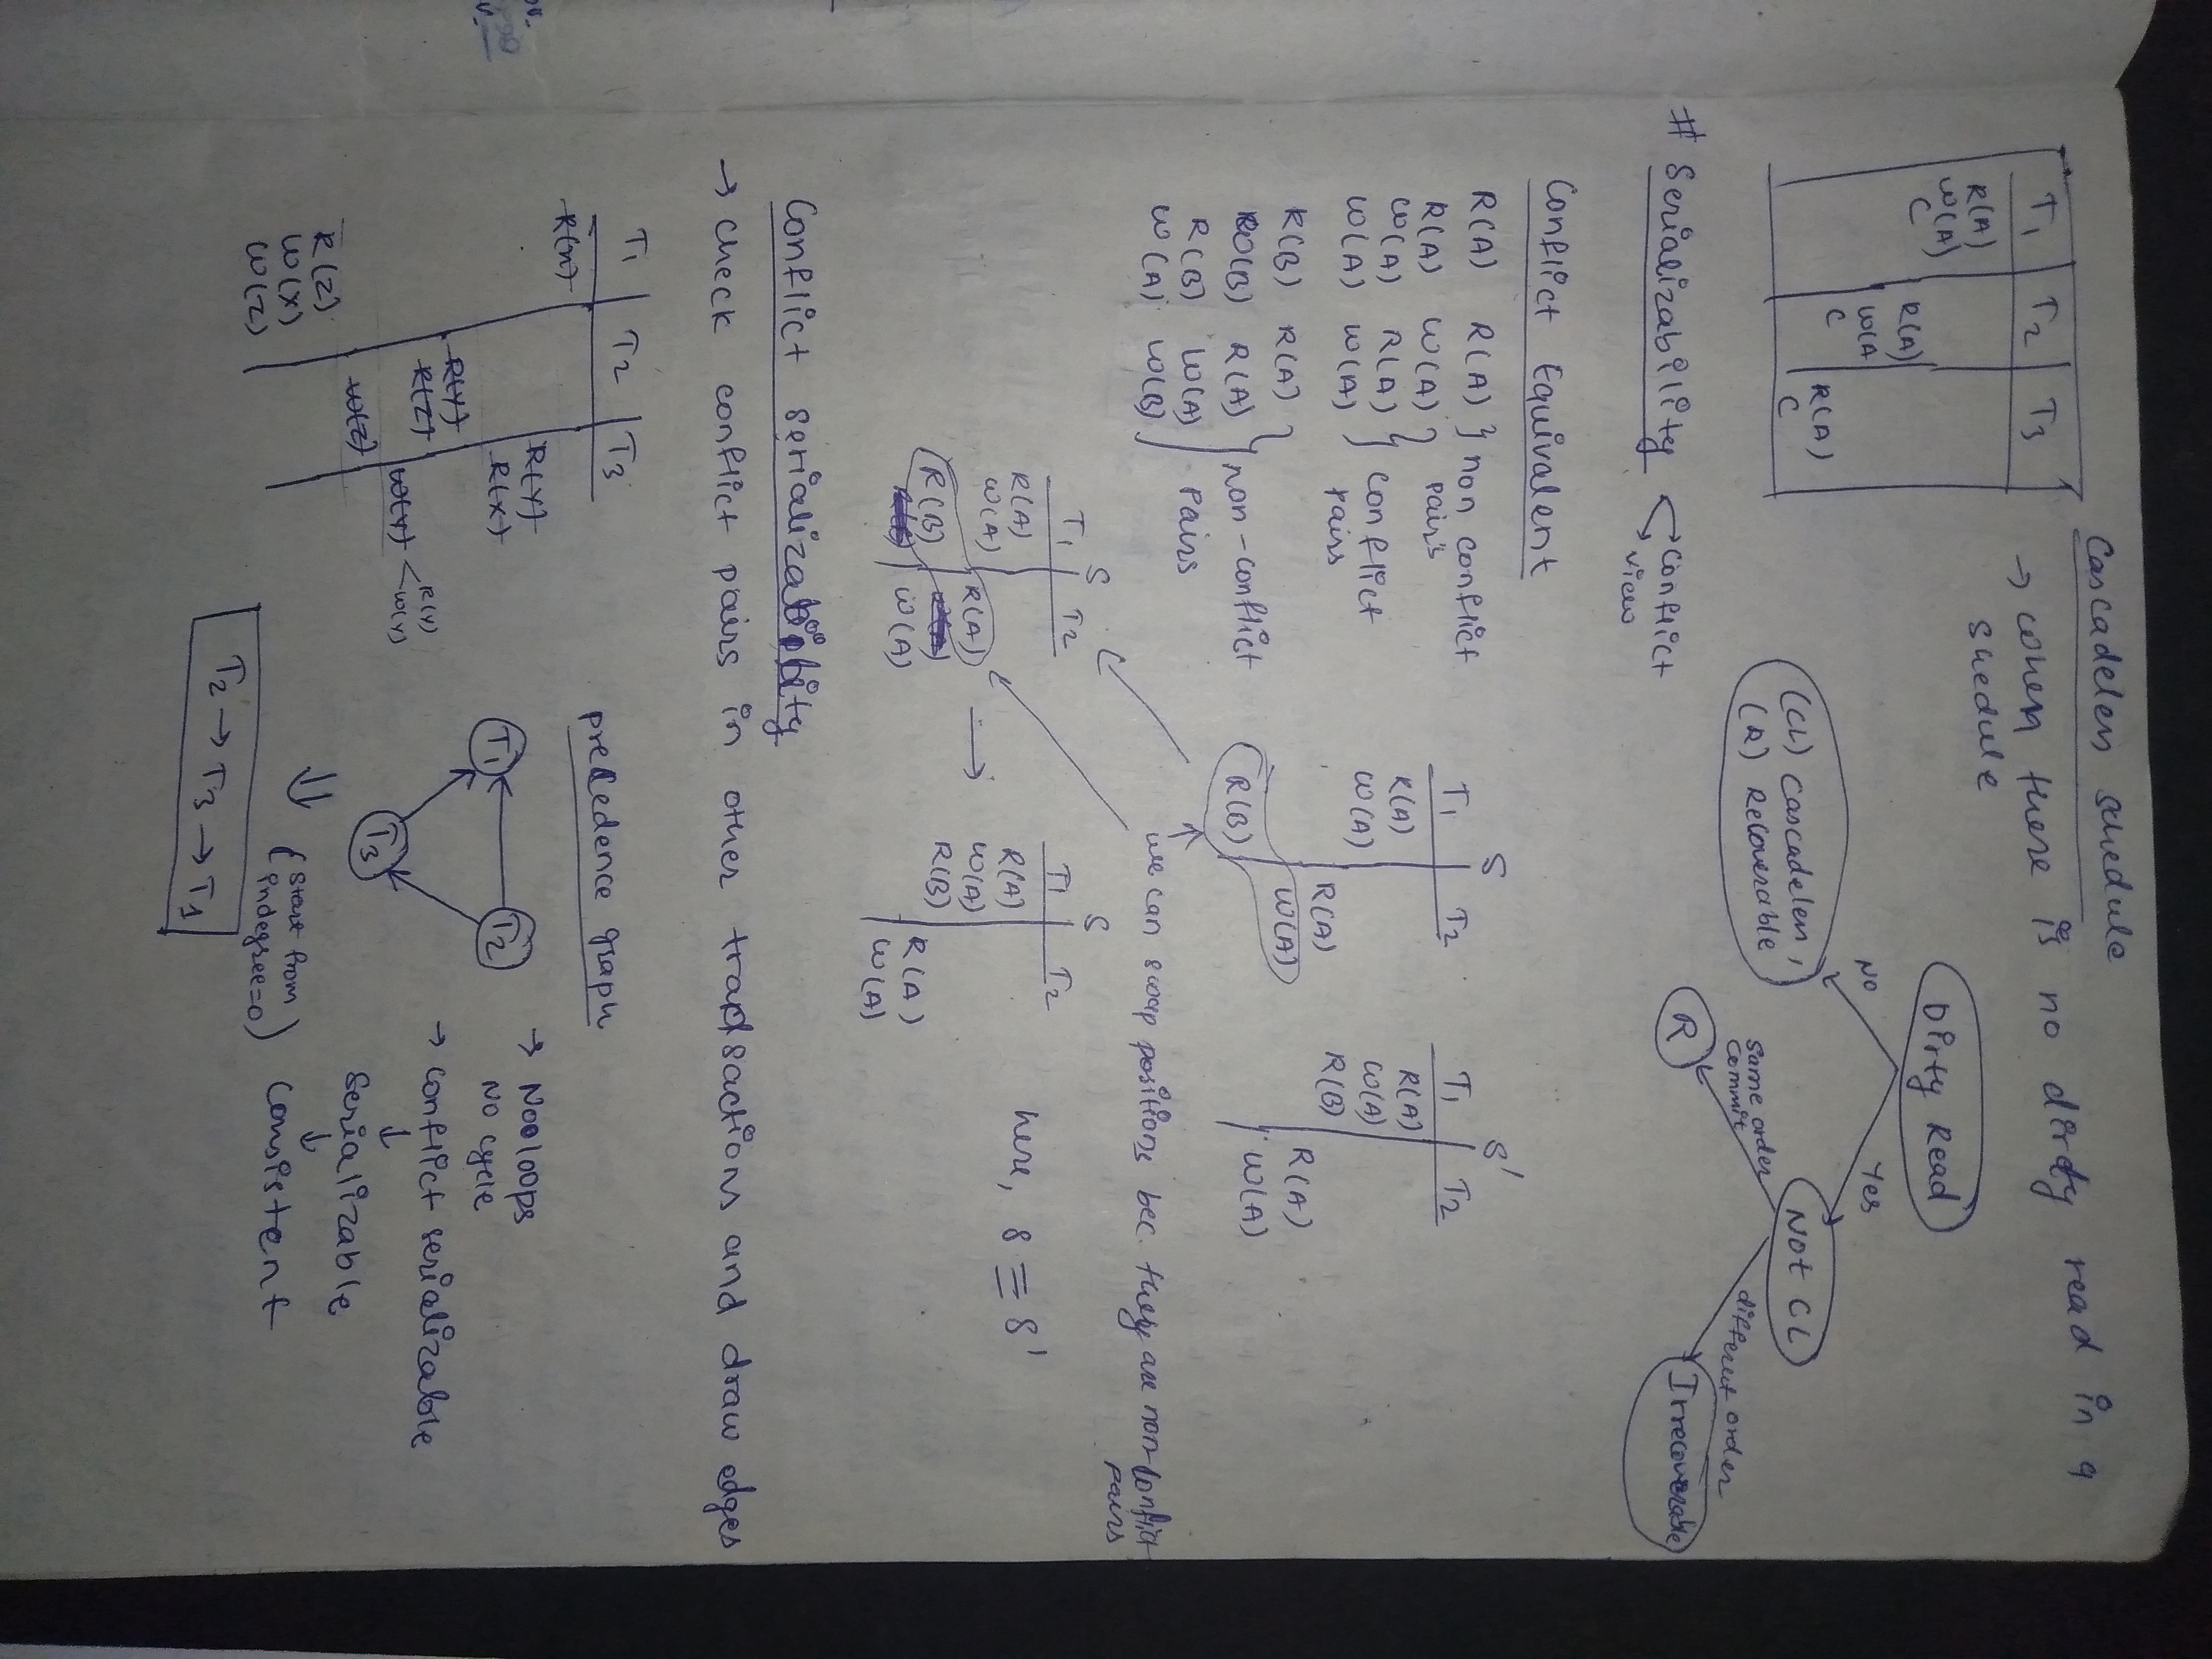 Cascadeless schedule
→ when there is no dirty read in a
schedule
T1 T2 T3
R(A)
W(A)
C
R(A)
W(A
C
R(A)
C
Dirty Read
No
Yes
(CL) Cascadeless,
(R) Recoverable
Not CL
Same order
Commit
different order
R
Irrecoverable
# Serializability
Conflict
view
Conflict Equivalent
R(A) R(A) } non conflict
pairs
R(A) W(A)
W(A) R(A) } Conflict
W(A) W(A) pairs
R(B) R(A)
W(B) R(A) } non-conflict
R(B) W(A) pairs
W(A) W(B)
S
T1 T2
R(A)
W(A)
R(A)
W(A)
R(B)
S'
T1 T2
R(A)
W(A)
R(B)
R(A)
W(A)
we can swap positions bec. they are non-conflict
pairs
S
T1 T2
R(A)
W(A)
R(A)
R(B)
W(A)
→
S
T1 T2
R(A)
W(A)
R(B)
R(A)
W(A)
here, S ≡ S'
Conflict Serializability
→ check conflict pairs in other transactions and draw edges
T1 T2 T3
R(x)
R(Y)
R(X)
R(Y)
R(Z)
W(Y) < R(Y)
W(Y)
W(Z)
R(Z)
W(X)
W(Z)
precedence graph
T1 T2
T3
→ No loops
No cycle
→ Conflict serializable
↓
Serializable
↓
Consistent
⇓ (start from
indegree=0)
T2 → T3 → T1